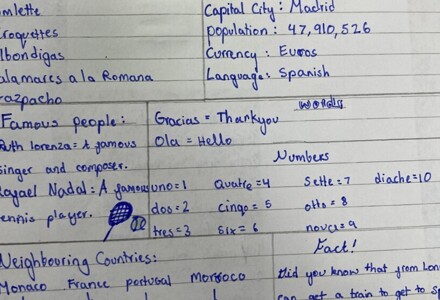 mlette
roquettes
lbondigas
alamares a la Romana
azpacho
Capital City: Madrid
population: 47,910,526
Currency: Euros
Language: Spanish
Famous people:
uth lorenza= A famous
singer and composer.
Rafael Nadal: A famous
tennis player.
words
Gracias = Thankyou
Ola = Hello
Numbers
uno=1 Quatre=4 Sette=7 diache=10
dos=2 cinqo=5 otto=8
tres=3 six=6 nove=9
Neighbouring Countries:
Monaco France portugal Morroco
Fact!
Did you know that from Lon
can get a train to get to Sp